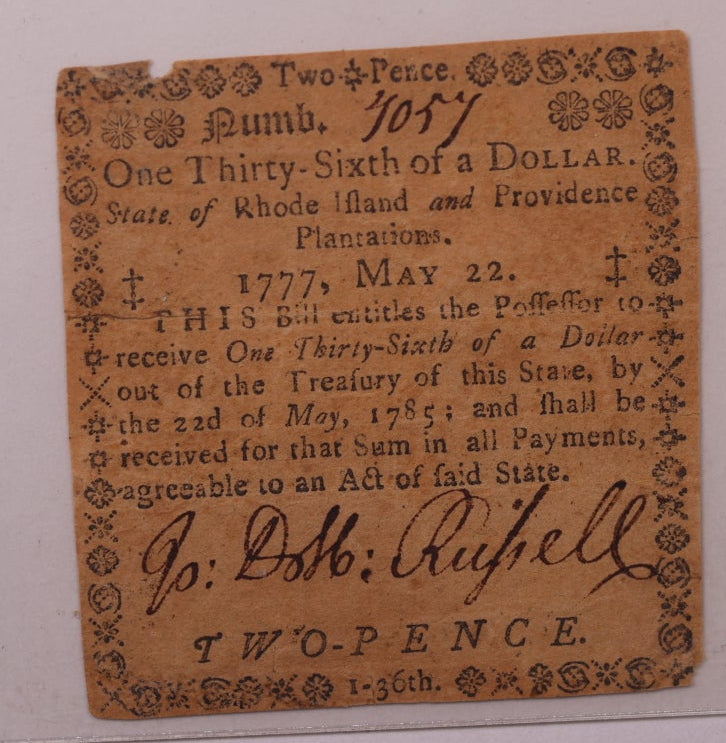 Two Pence.
Numb. 4057
One Thirty-Sixth of a DOLLAR.
State of Rhode Iſland and Providence
Plantations.
1777, MAY 22.
THIS Bill entitles the Poſſeſſor to
receive One Thirty-Sixth of a Dollar
out of the Treaſury of this State, by
the 22d of May, 1785; and ſhall be
received for that Sum in all Payments,
agreeable to an Act of ſaid State.
Ruſsell
TWO-PENCE.
1-36th.